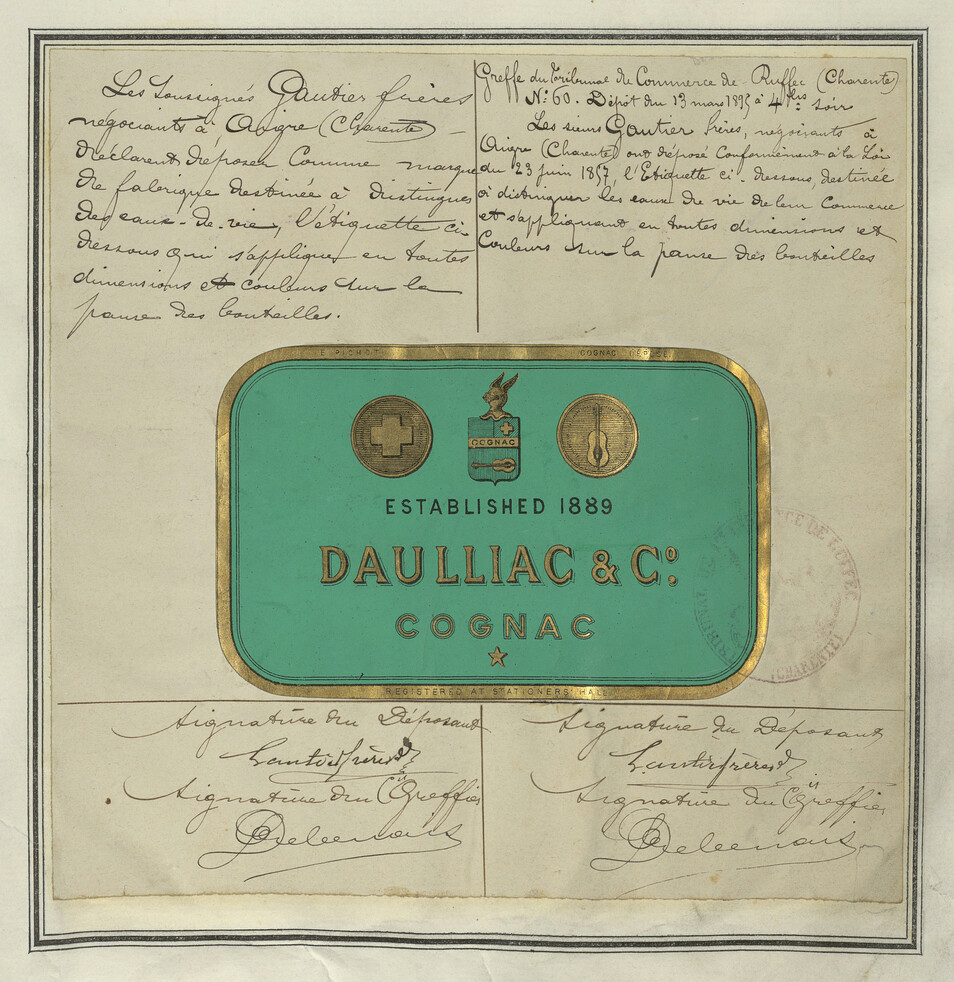 Les Soussignés Gautier frères
négociants à Aigre (Charente) —
déclarent déposer Comme marque
de fabrique destinée à distinguer
des eaux-de-vie, l'étiquette ci-
dessous qui s'applique en toutes
dimensions et couleurs sur la
panse des bouteilles.
Greffe du Tribunal de Commerce de Ruffec (Charente)
N° 60. Dépôt du 13 mars 1895 à 4 hrs soir
Les sieurs Gautier frères, négociants à
Aigre (Charente) ont déposé Conformément à la Loi
du 23 juin 1857, l'Etiquette ci-dessous, destinée
à distinguer les eaux de vie de leur Commerce
et s'appliquant en toutes dimensions et
Couleurs sur la panse des bouteilles
E. PICHOT
COGNAC DÉPOSÉ
COGNAC
ESTABLISHED 1889
DAULLIAC & Cº.
COGNAC
REGISTERED AT STATIONERS' HALL
TRIBUNAL DE COMMERCE DE RUFFEC
(CHARENTE)
Signature du Déposant
Gautier frères
Signature du Greffier
Signature du Déposant
Gautier frères
Signature du Greffier